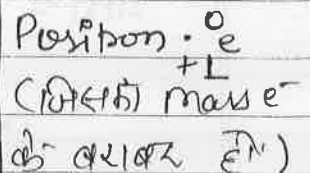 Positron . ⁰e
+1
(जिसका mass e⁻
के बराबर हो)